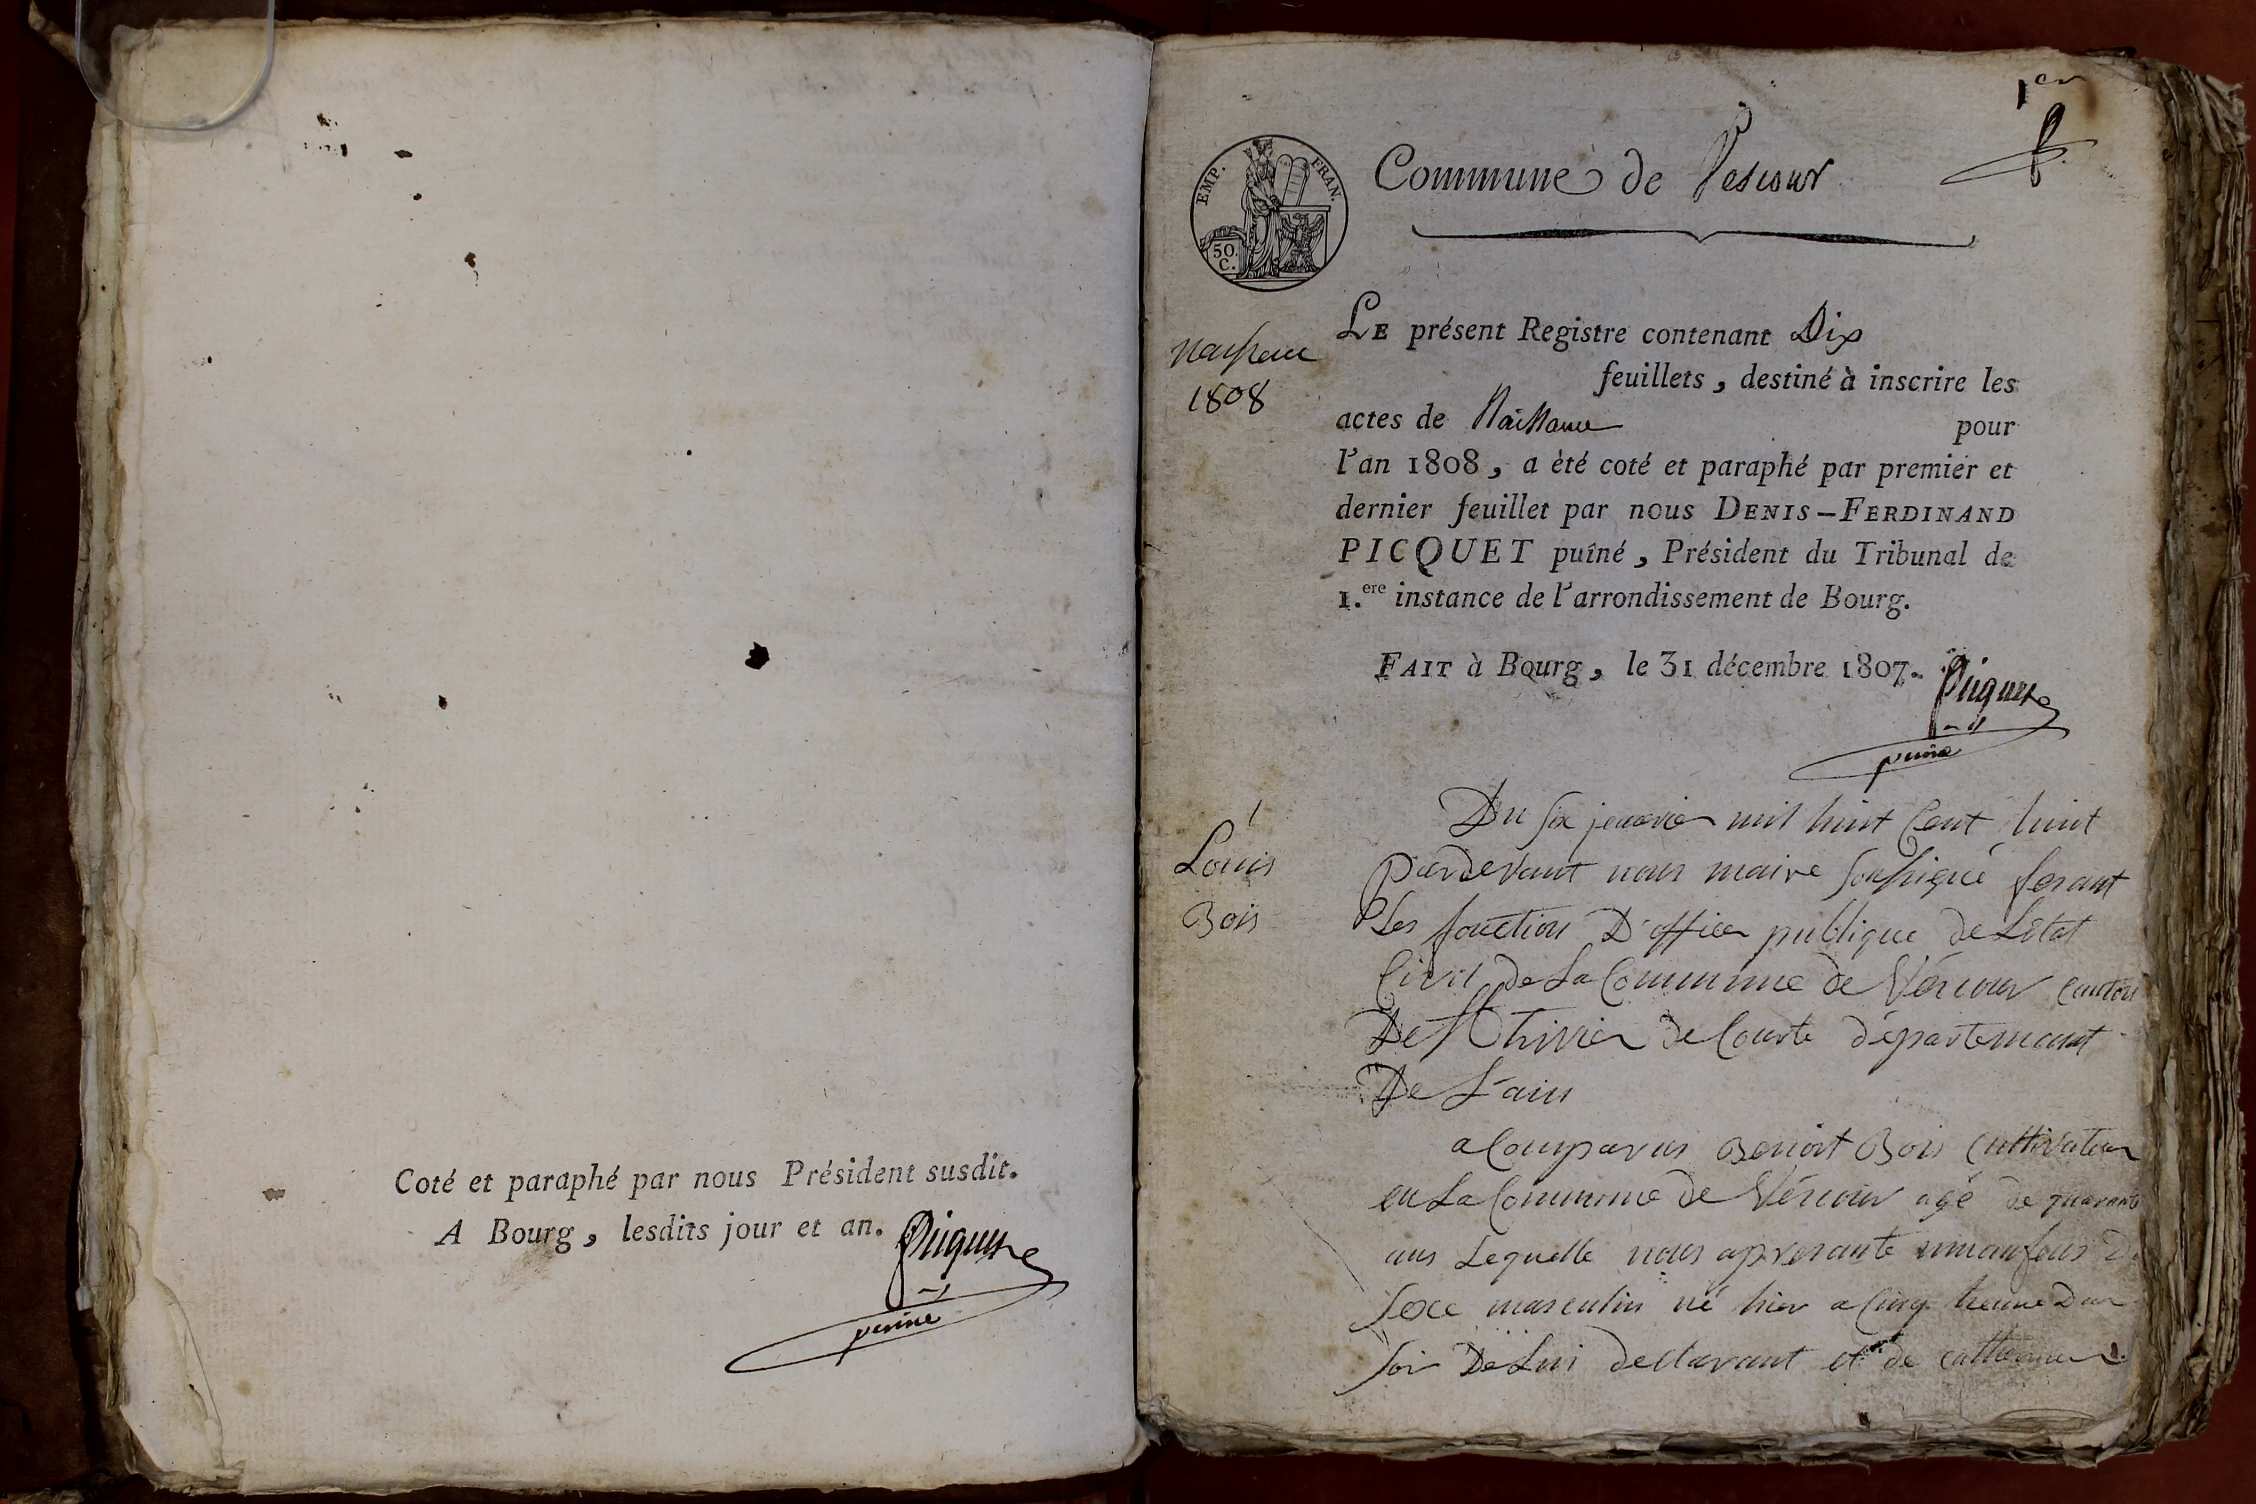 Coté et paraphé par nous Président susdit.
A Bourg, lesdits jour et an. Picquet
puiné
1er
EMP. FRAN.
50.
C.
Commune de Vescour
Naissance
1808
LE présent Registre contenant Dix
feuillets, destiné à inscrire les
actes de Naissance pour
l'an 1808, a été coté et paraphé par premier et
dernier feuillet par nous DENIS-FERDINAND
PICQUET puîné, Président du Tribunal de
1.ere instance de l'arrondissement de Bourg.
FAIT à Bourg, le 31 décembre 1807. Picquet
puiné
1
Louis
Bois
Du six jenvier mil huit Cent huit
pardevant nous maire soussigné fesant
Les fonction D'officer publique de L'état
Civil de La Commune de Véscour Canton
De St trivier de Courte département
De L'ain
a Comparus Benoit Bois Cultivateur
en La Commune de Véscour agé de quarante
ans Lequelle nous apresante unanfans De
sexe masculin né hier a Cinq heure Du
soir De Lui declarant et de catherine